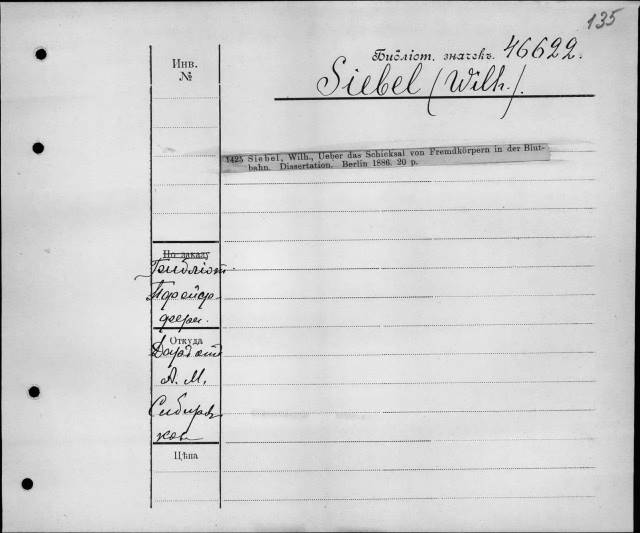 135
Библіот. значекъ. 46622.
Siebel (Wilh.).
Инв.
№
1425 Siebel, Wilh., Ueber das Schicksal von Fremdkörpern in der Blut-
bahn. Dissertation. Berlin 1886. 20 p.
По заказу
Библіот
Прейер
Откуда
А. М.
Сибиряк
ков
Цѣна